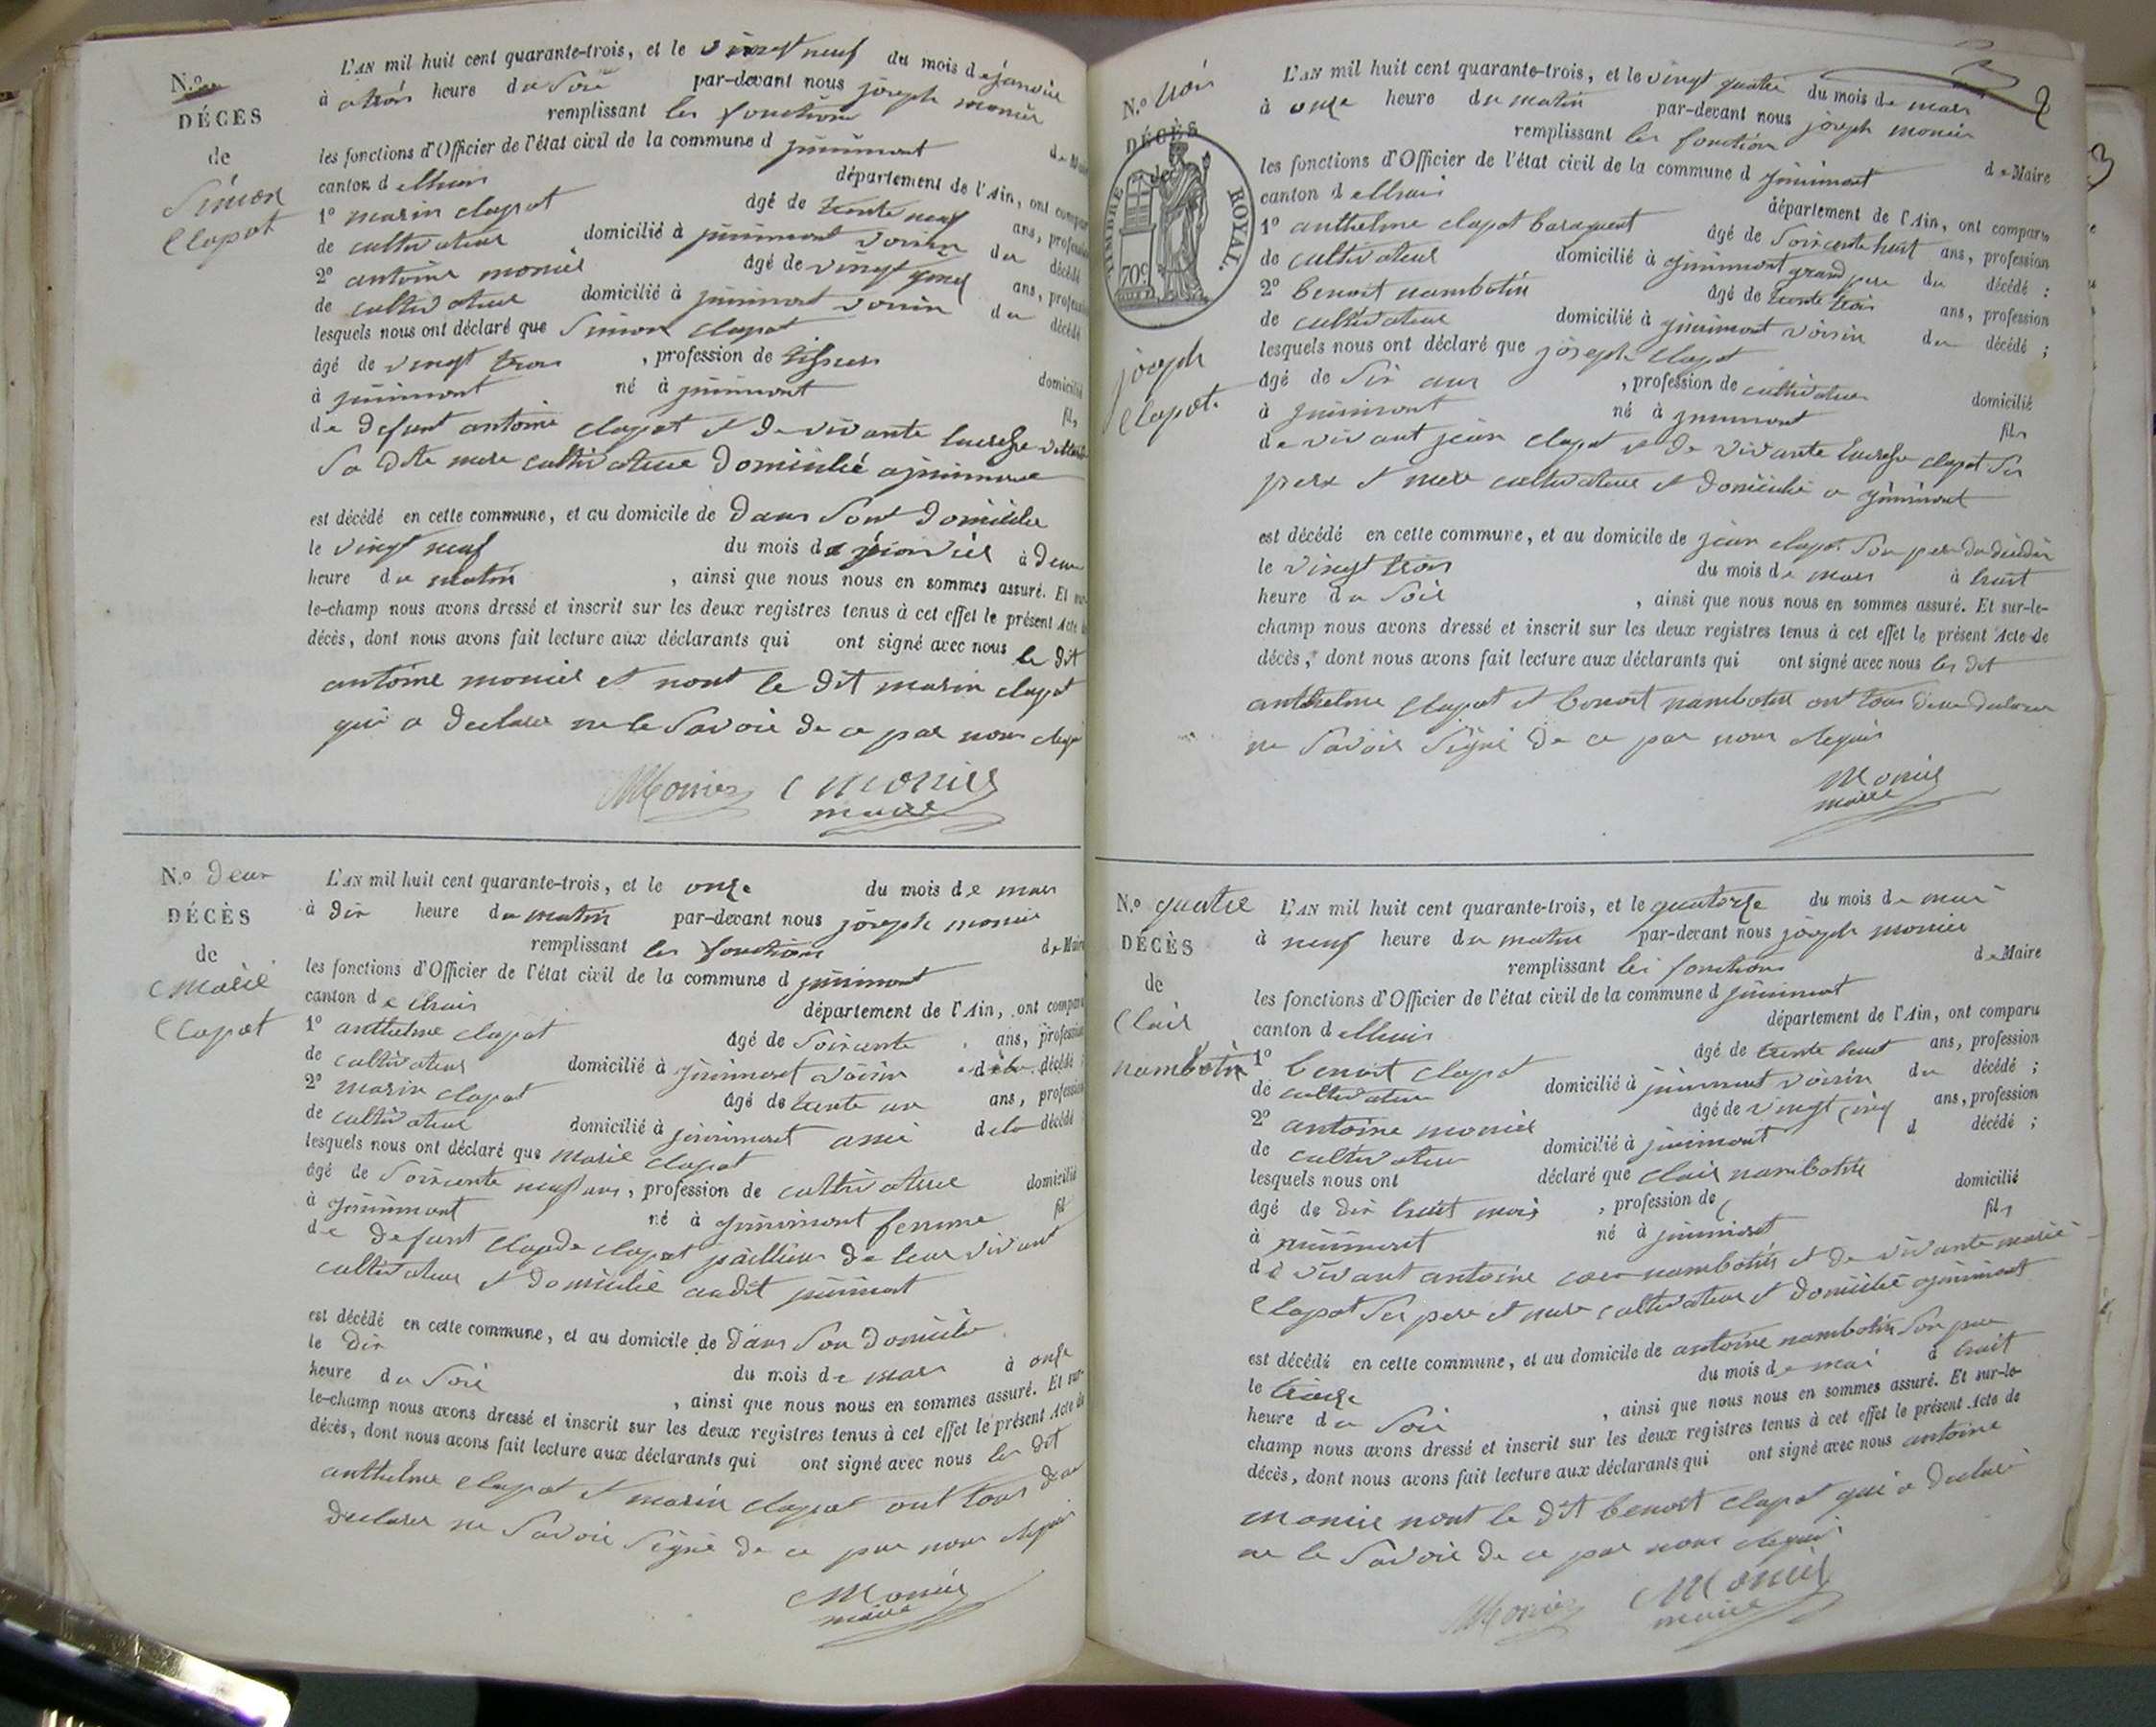 N.º
DÉCÈS
de
Simon
Clapot
L'AN mil huit cent quarante-trois, et le vingt neuf du mois de janvier
à trois heure du soir par-devant nous joseph monier
remplissant les fonctions de
les fonctions d'Officier de l'état civil de la commune d jnimont
canton d elhuis département de l'Ain, ont comparu
1º marin clapot âgé de trente neuf ans, profession
de cultivateur domicilié à jnimont voisin du décédé
2º antoine monier âgé de vingt ans, profession
de cultivateur domicilié à jnimont voisin du décédé
lesquels nous ont déclaré que Simon clapot
âgé de vingt trois , profession de tisseur domicilié
à jnimont né à jnimont fils
de defunt antoine clapot et de vivante
Sa dite mere cultivateur domicilié a jnimont
est décédé en cette commune, et au domicile de dans Sont domicile
le vingt neuf du mois de janvier à deux
heure du matin , ainsi que nous nous en sommes assuré. Et sur-
le-champ nous avons dressé et inscrit sur les deux registres tenus à cet effet le présent Acte de
décès, dont nous avons fait lecture aux déclarants qui ont signé avec nous le dit
antoine monier et nont le dit marin clapot
qui a declare ne le Savoir de ce par nous requi
Monier Monier
maire
N.º deux
DÉCÈS
de
Marie
Clapot
L'AN mil huit cent quarante-trois, et le onze du mois de mars
à dix heure du matin par-devant nous joseph monier
remplissant les fonctions de Maire
les fonctions d'Officier de l'état civil de la commune d jnimont
canton de lhuis département de l'Ain, ont comparu
1º anthelme clapot âgé de Soixante ans, profession
de cultivateur domicilié à jnimont voisin de la décédé
2º marin clapot âgé de trente un ans, profession
de cultivateur domicilié à jnimont ami de la décédé
lesquels nous ont déclaré que marie clapot
âgé de Soixante neuf ans, profession de cultivateur domicilié
à jnimont né à jnimont femme fil
de defunt claude clapot de leur vivant
cultivateur et domicilié audit jnimont
est décédé en cette commune, et au domicile de dans Son domicile
le dix du mois de mars à onze
heure du Soir , ainsi que nous nous en sommes assuré. Et sur-
le-champ nous avons dressé et inscrit sur les deux registres tenus à cet effet le présent Acte de
décès, dont nous avons fait lecture aux déclarants qui ont signé avec nous les dit
anthelme clapot et marin clapot ont tous deux
declarer ne Savoir Signé de ce par nous requi
Monier
maire
2
N.º trois
DÉCÈS
de
TIMBRE ROYAL.
70c
joseph
Clapot.
L'AN mil huit cent quarante-trois, et le vingt quatre du mois de mars
à onze heure du matin par-devant nous joseph monier
remplissant les fonction de Maire
les fonctions d'Officier de l'état civil de la commune d jnimont
canton d elhuis département de l'Ain, ont comparu
1º anthelme clapot âgé de Soixante huit ans, profession
de cultivateur domicilié à jnimont grand pere du décédé :
2º benoit nambotin âgé de trente trois ans, profession
de cultivateur domicilié à jnimont voisin du décédé ;
lesquels nous ont déclaré que joseph clapot
âgé de Six ans , profession de cultivateur domicilié
à jnimont né à jnimont fils
de vivant jean clapot et de vivante clapot Ses
pere et mere cultivateur et domicilié a jnimont
est décédé en cette commune, et au domicile de jean clapot Son pere du
le vingt trois du mois de mars à huit
heure du Soir , ainsi que nous nous en sommes assuré. Et sur-le-
champ nous avons dressé et inscrit sur les deux registres tenus à cet effet le présent Acte de
décès, dont nous avons fait lecture aux déclarants qui ont signé avec nous les dit
anthelme clapot et benoit nambotin ont tous deux declarer
ne Savoir Signé de ce par nous requis
Monier
maire
N.º quatre
DÉCÈS
de
Clair
nambotin
L'AN mil huit cent quarante-trois, et le quatorze du mois de mai
à neuf heure du matin par-devant nous joseph monier
remplissant les fonctions de Maire
les fonctions d'Officier de l'état civil de la commune d jnimont
canton d elhuis département de l'Ain, ont comparu
1º benoit clapot âgé de trente huit ans, profession
de cultivateur domicilié à jnimont voisin du décédé ;
2º antoine monier âgé de vingt cinq ans, profession
de cultivateur domicilié à jnimont d décédé ;
lesquels nous ont déclaré que clair nambotin
âgé de dix huit mois , profession de domicilié
à jnimont né à jnimont fils
de vivant antoine nambotin et de vivante marie
Clapot Ses pere et mere cultivateur et domicilié a jnimont
est décédé en cette commune, et au domicile de antoine nambotin Son pere
le treize du mois de mai à huit
heure du Soir , ainsi que nous nous en sommes assuré. Et sur-le-
champ nous avons dressé et inscrit sur les deux registres tenus à cet effet le présent Acte de
décès, dont nous avons fait lecture aux déclarants qui ont signé avec nous antoine
monier nont le dit benoit clapot qui a declaré
ne le Savoir de ce par nous requis
Monier Monier
maire
3